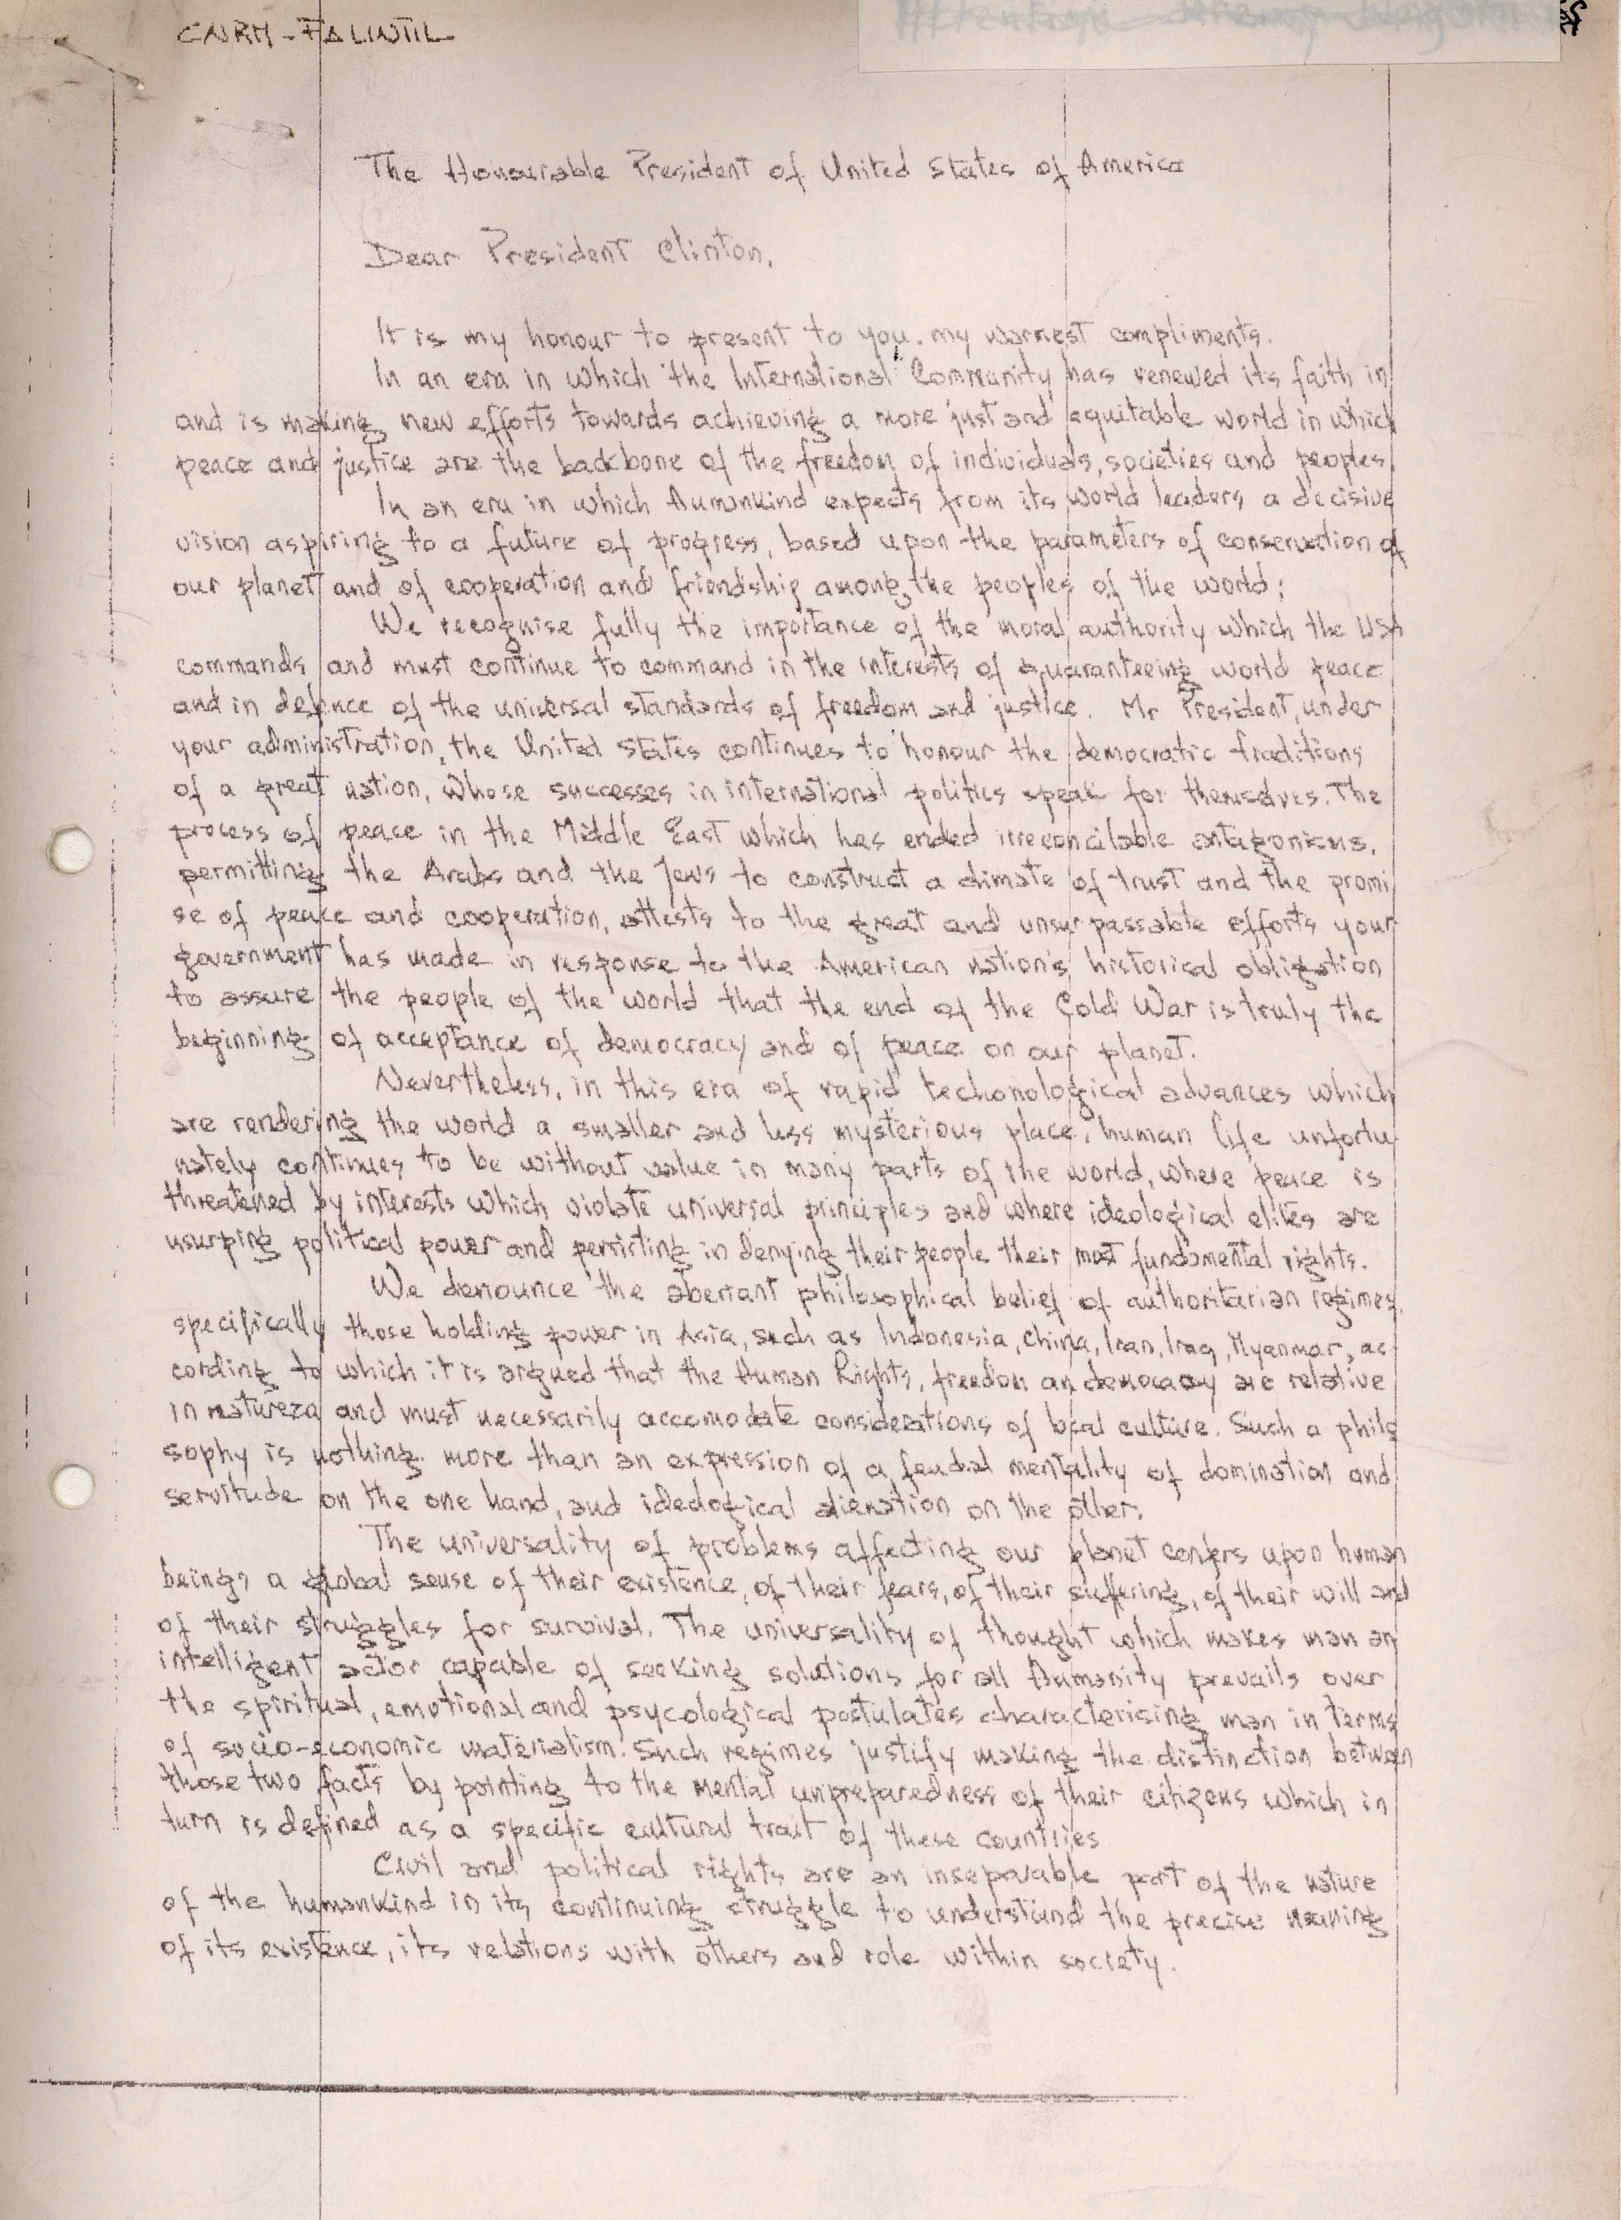 CNRM - FALINTIL
The Honourable President of United States of America
Dear President Clinton,
It is my honour to present to you, my warmest compliments.
In an era in which the International Community has renewed its faith in
and is making new efforts towards achieving a more just and equitable world in which
peace and justice are the backbone of the freedom of individuals, societies and peoples,
In an era in which humankind expects from its world leaders a decisive
vision aspiring to a future of progress, based upon the parameters of conservation of
our planet and of cooperation and friendship among the peoples of the world;
We recognise fully the importance of the moral authority which the USA
commands and must continue to command in the interests of guaranteeing world peace
and in defence of the universal standards of freedom and justice. Mr President, under
your administration, the United States continues to honour the democratic traditions
of a great nation, whose successes in international politics speak for themselves. The
process of peace in the Middle East which has ended irreconcilable antagonisms,
permitting the Arabs and the Jews to construct a climate of trust and the promi
se of peace and cooperation, attests to the great and unsurpassable efforts your
government has made in response to the American nation's historical obligation
to assure the people of the world that the end of the Cold War is truly the
beginning of acceptance of democracy and of peace on our planet.
Nevertheless, in this era of rapid techonological advances which
are rendering the world a smaller and less mysterious place, human life unfortu-
nately continues to be without value in many parts of the world, where peace is
threatened by interests which violate universal principles and where ideological elites are
usurping political power and persisting in denying their people their most fundamental rights.
We denounce the aberrant philosophical belief of authoritarian regimes,
specifically those holding power in Asia, such as Indonesia, China, Iran, Iraq, Myanmar, ac-
cording to which it is argued that the Human Rights, freedom an democracy are relative
in natureza and must necessarily accomodate considerations of local culture. Such a philo
sophy is nothing more than an expression of a feudal mentality of domination and
servitude on the one hand, and ideological alienation on the other.
The universality of problems affecting our planet confers upon human
beings a global sense of their existence, of their fears, of their suffering, of their will and
of their struggles for survival. The universality of thought which makes man an
intelligent actor capable of seeking solutions for all humanity prevails over
the spiritual, emotional and psycological postulates characterising man in terms
of socio-economic materialism. Such regimes justify making the distinction between
those two facts by pointing to the mental unpreparedness of their citizens which in
turn is defined as a specific cultural trait of these countries
Civil and political rights are an inseparable part of the nature
of the humankind in its continuing struggle to understand the precise meaning
of its existence, its relations with others and role within society.